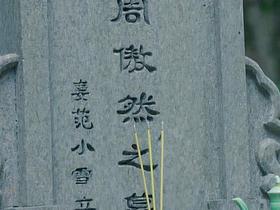 周傲然之
妻范小雪立